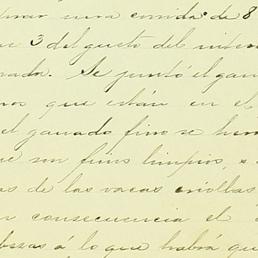 una comida de 8
3 del gusto del
Se juntó el gana
que están en el
el ganado fino se
son finos limpios,
as de las vacas criollas
consecuencia el
bezas á lo que habrá que